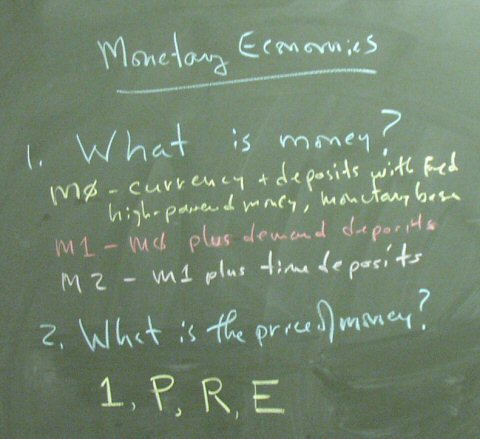 Monetary Economics
1. What is money?
MØ - currency + deposits with Fed
high-powered money, monetary base
M1 - MØ plus demand deposits
M2 - M1 plus time deposits
2. What is the price of money?
1, P, R, E